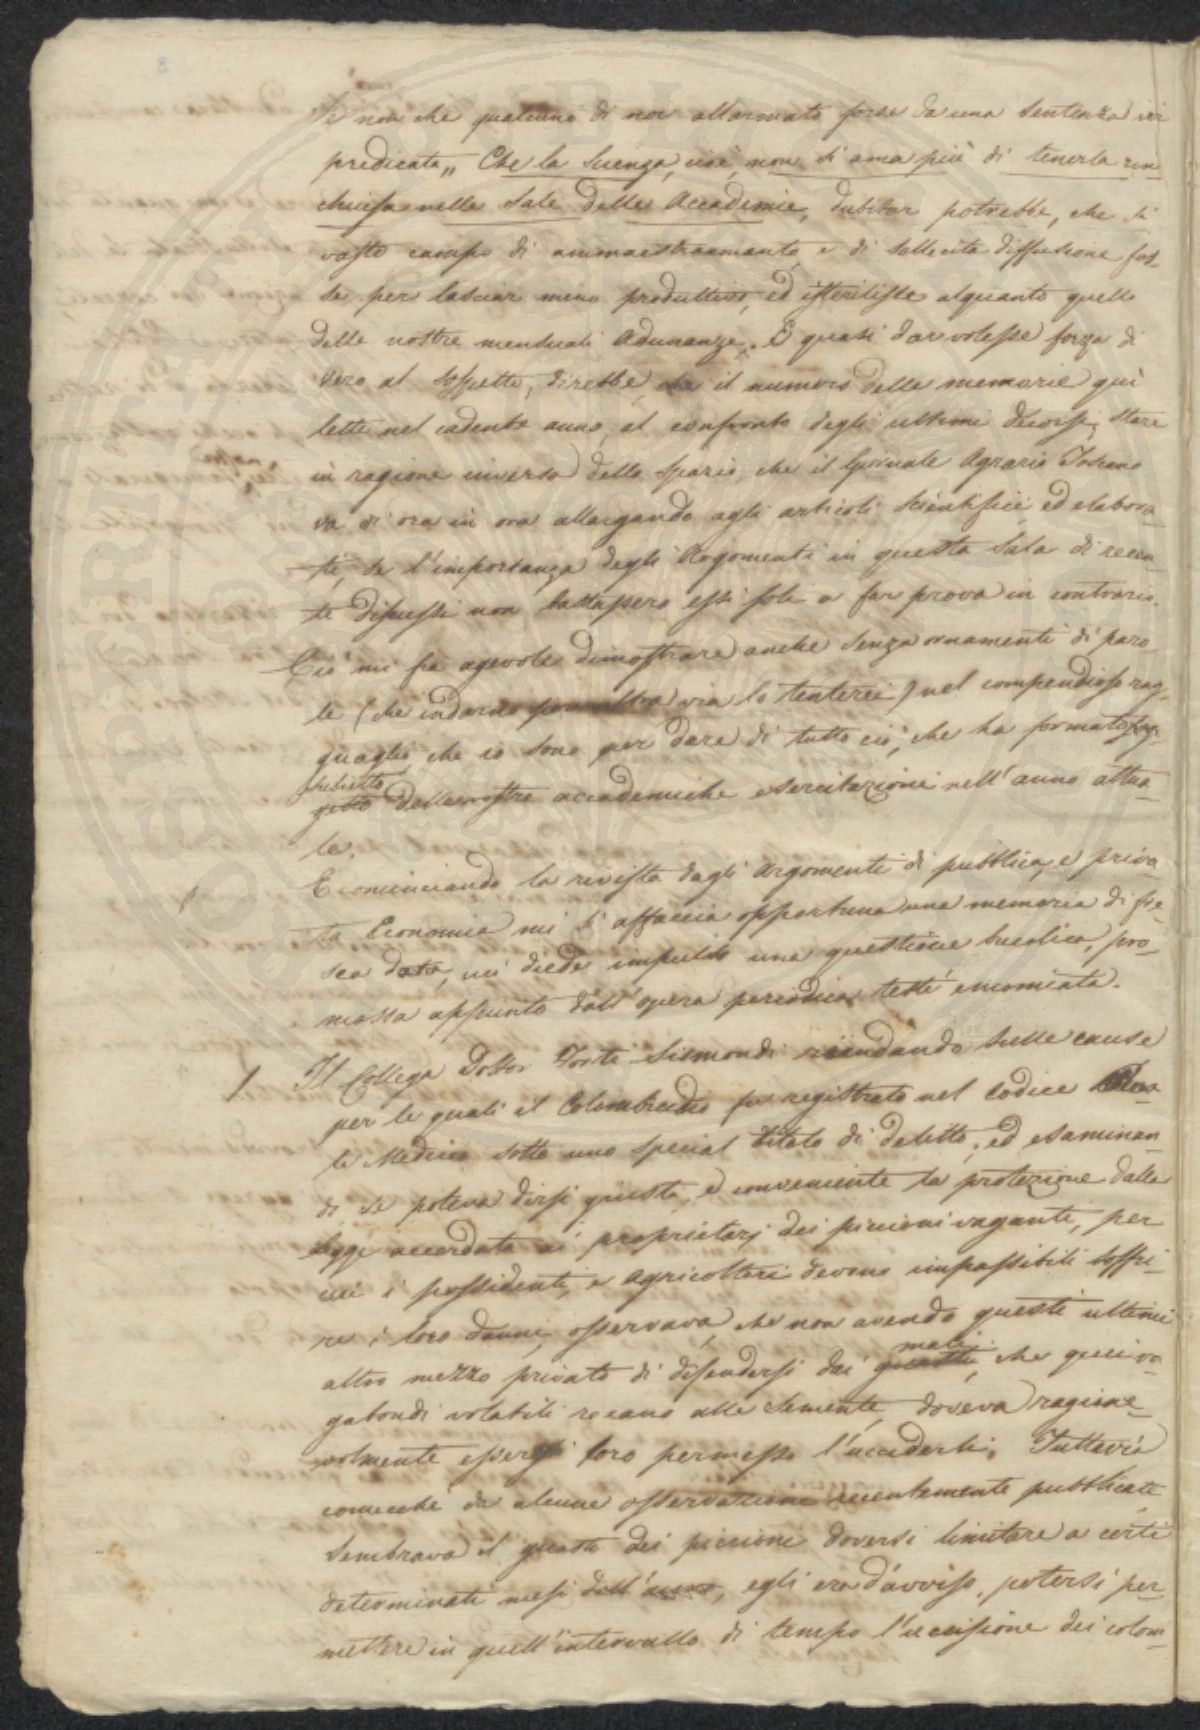 Se non che qualcuno di noi allarmato forse da una sentenza ivi
predicata,, Che la Scienza, cioè, non si ama più di tenerla rin
chiusa nelle Sale delle Accademie, dubitar potrebbe, che sì
vasto campo di ammaestramento, e di sollecita diffusione fos-
se per lasciar meno produttivo, ed isterilisse alquanto quello
delle nostre mensuali Adunanze. E quasi dar volesse forza di
vero al sospetto, direbbe, che il numero delle memorie quì
lette nel cadente anno, al confronto degli ultimi decorsi, stare
in ragione inversa dello spazio, che il Giornale Agrario Toscano
va di ora in ora allargando agli articoli scientifici, ed elabora-
ti, se l'importanza degli Argomenti in questa Sala di recen
te discussi non bastassero essi soli a far prova in contrario.
Ciò mi fia agevole dimostrare anche senza ornamenti di paro
le (che indarno per altra via lo tenterei) nel compendioso rag-
guaglio, che io sono per dare di tutto ciò, che ha formato sog-
subietto
getto delle nostre accademiche esercitazioni nell'anno attua-
le.
E cominciando la rivista dagli Argomenti di pubblica, e priva-
ta Economia mi si affaccia opportuna una memoria di fre-
sca data, cui diede impulso una questione bucolica, pro-
mossa appunto dall'opera periodica testé encomiata.
1. Il Collega Dottor Forti Sismondi riandando sulle cause
per le quali il Colombicidio fu registrato nel Codice
le Mediceo sotto uno special titolo di delitto, ed esaminan
do se poteva dirsi giusta, e conveniente la protezione dalla
legge accordata ai proprietarj dei piccioni vaganti, per
cui i possidenti, e Agricoltori devono impassibili soffri-
re i loro danni, osservava, che non avendo questi ultimi
mali
altro mezzo privato di difendersi dai guasti, che quei va
gabondi volatili recano alle semente, doveva ragione-
volmente essersi loro permesso l'ucciderli. Tuttavia
comecché da alcune osservazioni recentemente pubblicate
sembrava il guasto dei piccioni doversi limitare a certi
determinati mesi dell'anno, egli era d'avviso, potersi per-
mettere in quell'intervallo di tempo l'uccisione dei colom-